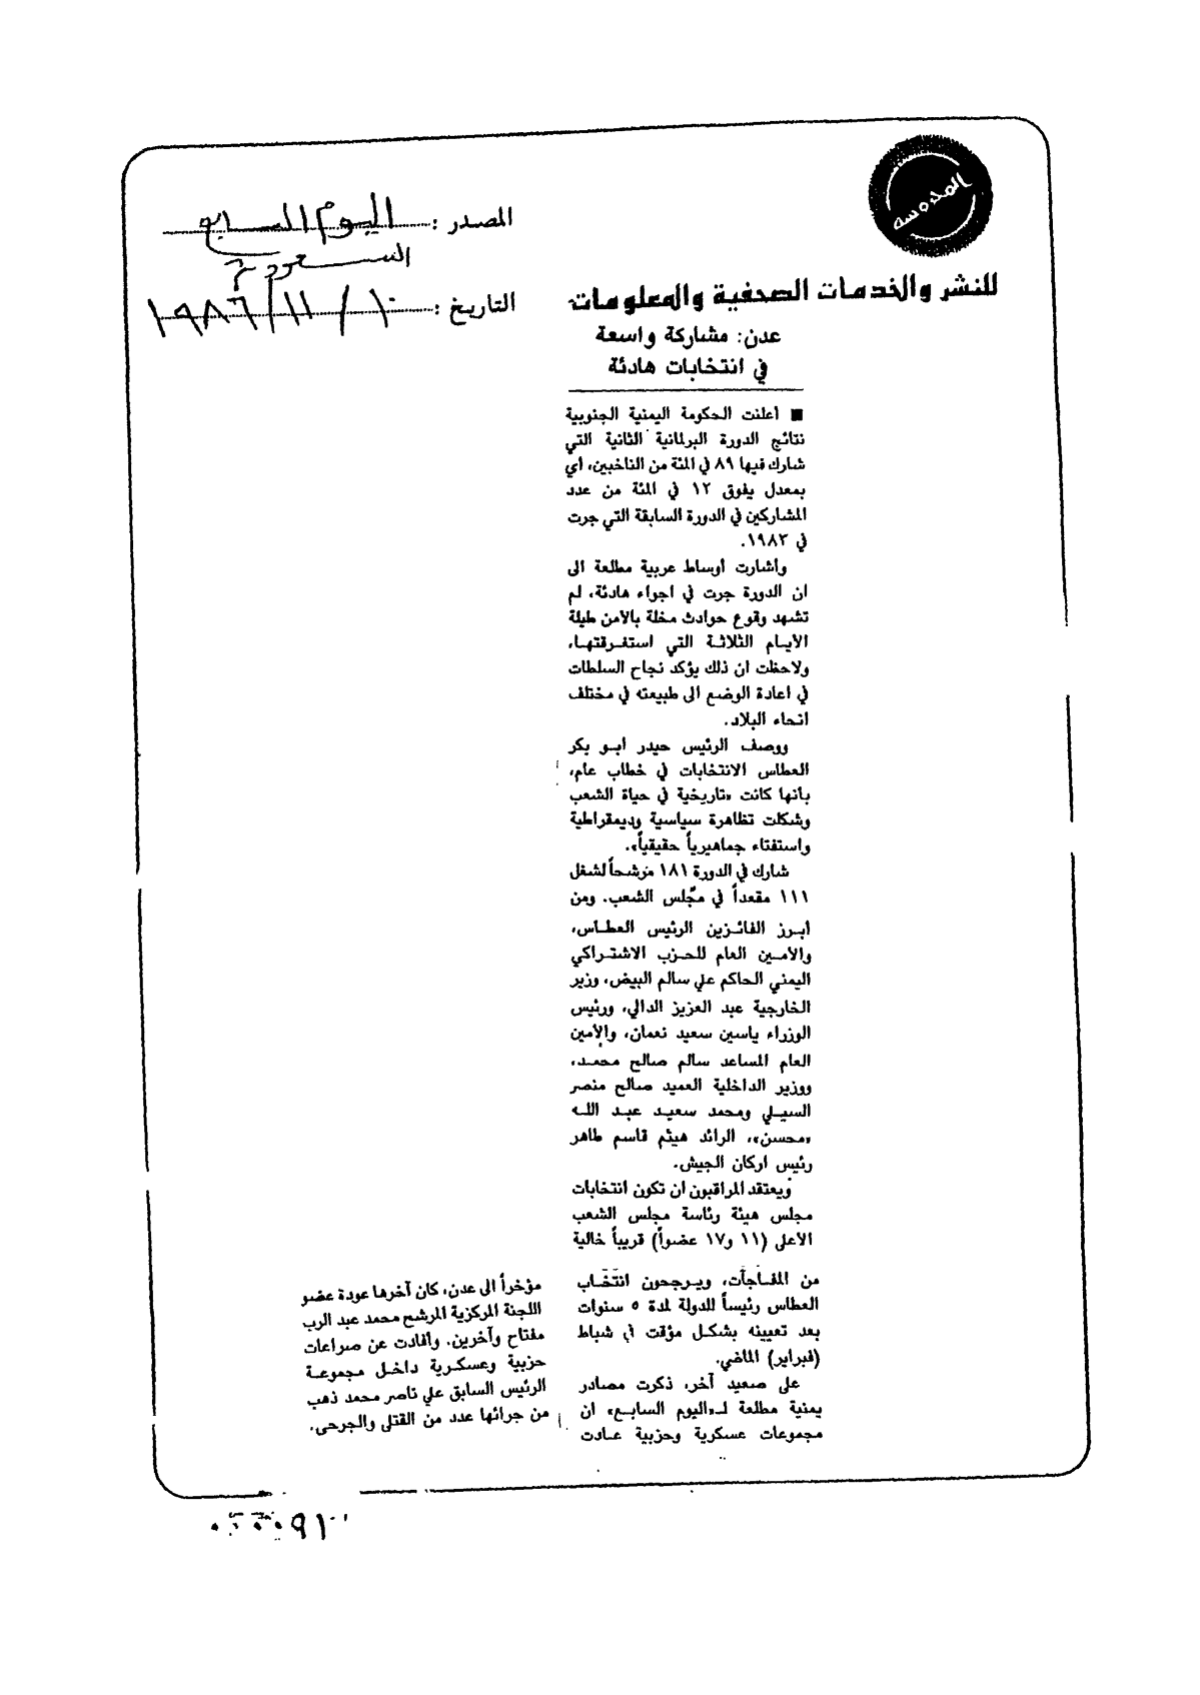 المدوسة
للنشر والخدمات الصحفية والمعلومات
المصدر : اليوم السابع
السعودية
التاريخ : ١٠ / ١١ / ١٩٨٦
عدن: مشاركة واسعة
في انتخابات هادئة
■ أعلنت الحكومة اليمنية الجنوبية
نتائج الدورة البرلمانية الثانية التي
شارك فيها ٨٩ في المئة من الناخبين، أي
بمعدل يفوق ١٢ في المئة من عدد
المشاركين في الدورة السابقة التي جرت
في ١٩٨٣.
وأشارت أوساط عربية مطلعة الى
ان الدورة جرت في اجواء هادئة، لم
تشهد وقوع حوادث مخلة بالأمن طيلة
الأيام الثلاثة التي استغرقتها،
ولاحظت ان ذلك يؤكد نجاح السلطات
في اعادة الوضع الى طبيعته في مختلف
انحاء البلاد.
ووصف الرئيس حيدر ابو بكر
العطاس الانتخابات في خطاب عام،
بانها كانت «تاريخية في حياة الشعب
وشكلت تظاهرة سياسية وديمقراطية
واستفتاء جماهيرياً حقيقياً».
شارك في الدورة ١٨١ مرشحاً لشغل
١١١ مقعداً في مجلس الشعب. ومن
أبرز الفائزين الرئيس العطاس،
والأمين العام للحزب الاشتراكي
اليمني الحاكم علي سالم البيض، وزير
الخارجية عبد العزيز الدالي، ورئيس
الوزراء ياسين سعيد نعمان، والأمين
العام المساعد سالم صالح محمد،
ووزير الداخلية العميد صالح منصر
السيلي ومحمد سعيد عبد الله
«محسن»، الرائد هيثم قاسم طاهر
رئيس اركان الجيش.
ويعتقد المراقبون ان تكون انتخابات
مجلس هيئة رئاسة مجلس الشعب
الأعلى (١١ و١٧ عضواً) قريباً خالية
من المفاجآت، ويرجحون انتخاب
العطاس رئيساً للدولة لمدة ٥ سنوات
بعد تعيينه بشكل مؤقت في شباط
(فبراير) الماضي.
على صعيد آخر، ذكرت مصادر
يمنية مطلعة لـ«اليوم السابع» ان
مجموعات عسكرية وحزبية عادت
مؤخراً الى عدن، كان آخرها عودة عضو
اللجنة المركزية المرشح محمد عبد الرب
مفتاح وآخرين. وأفادت عن صراعات
حزبية وعسكرية داخل مجموعة
الرئيس السابق علي ناصر محمد ذهب
من جرائها عدد من القتلى والجرحى.